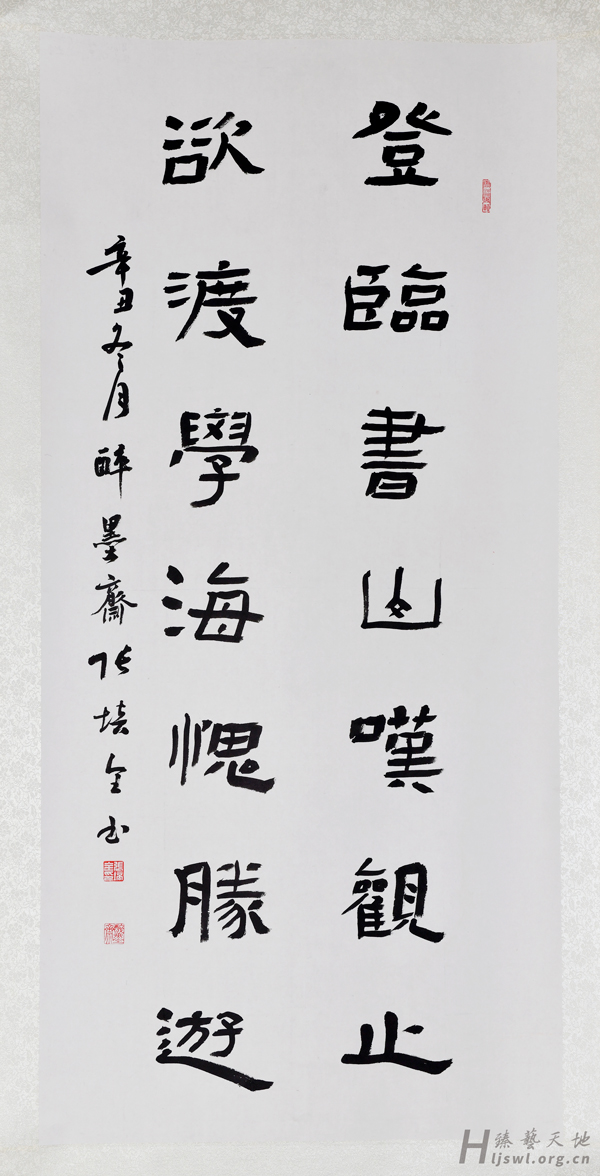 登臨書山嘆觀止
欲渡學海愧勝遊
辛丑冬月醉墨齋张培金书
臻藝天地
Hljswl.org.cn